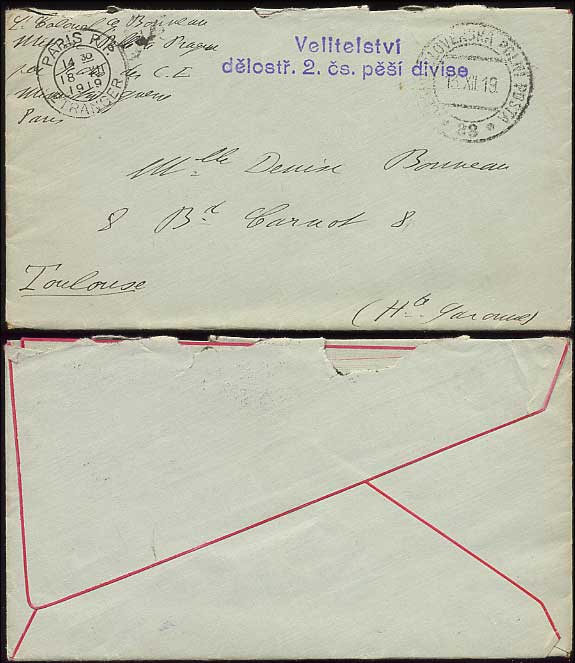 Lt Colonel Bonneau
Prague
C.E.
Paris
PARIS R.P.
14 30
18 XII
1919
ETRANGER
Velitelství
dělostř. 2. čs. pěší divise
POLNÍ POSTA
XII.19.
* 88 *
Mlle Denise Bonneau
8 Bd Carnot 8
Toulouse
(Hte Garonne)